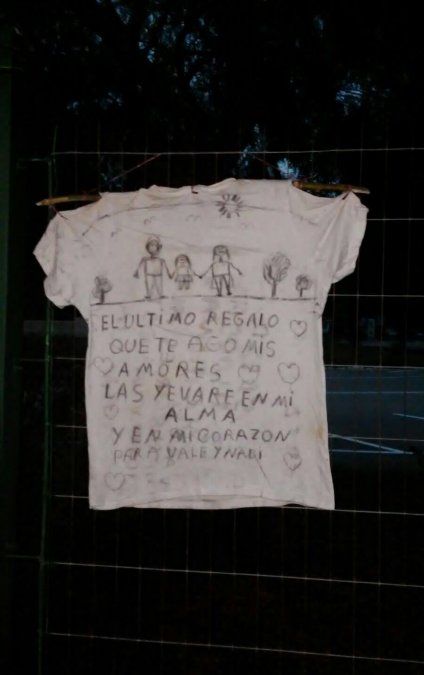 EL ULTIMO REGALO
QUE TE AGO MIS
AMORES
LAS YEVARE EN MI
ALMA
Y EN MI CORAZON
PARA VALE Y NABI